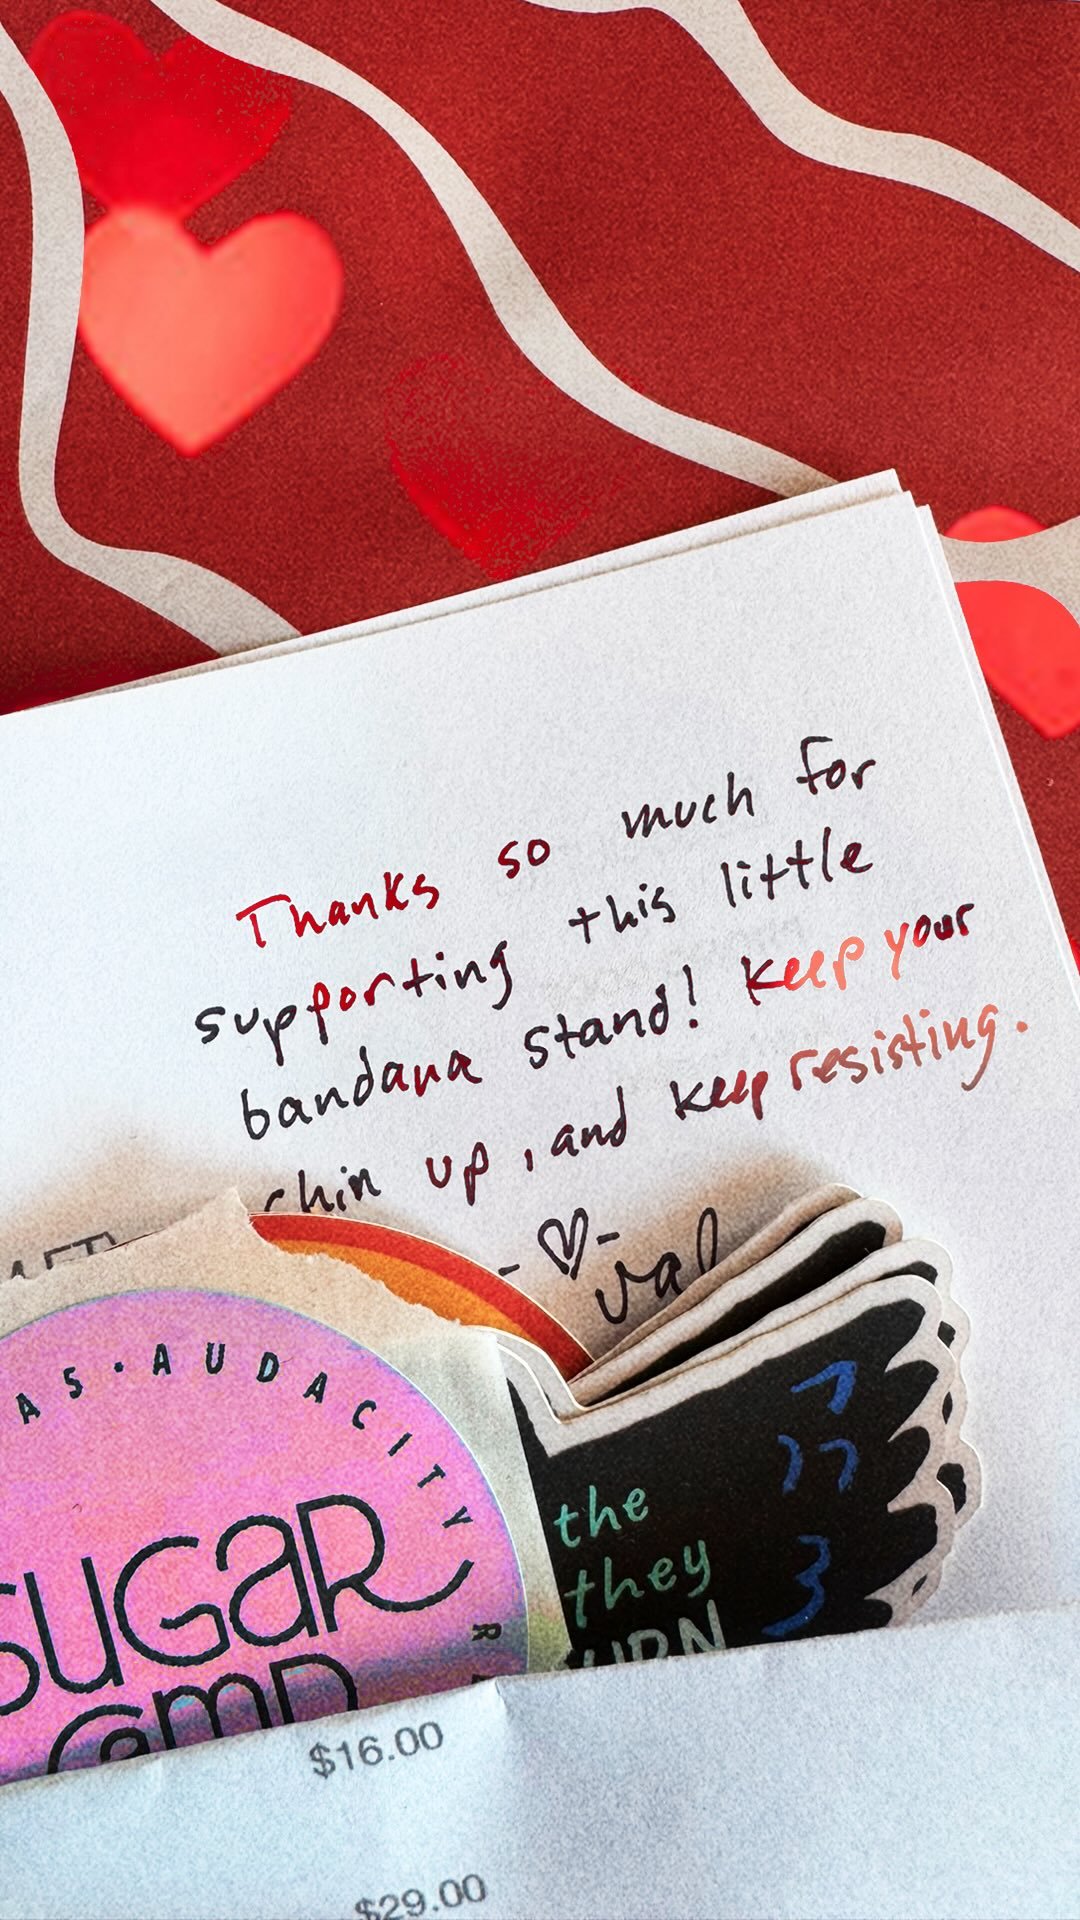 Thanks so much for
supporting this little
bandana stand! Keep your
chin up, and keep resisting.
- ♡ -
val
AS · AUDACITY
SUGAR
Camp
the
they
$16.00
$29.00